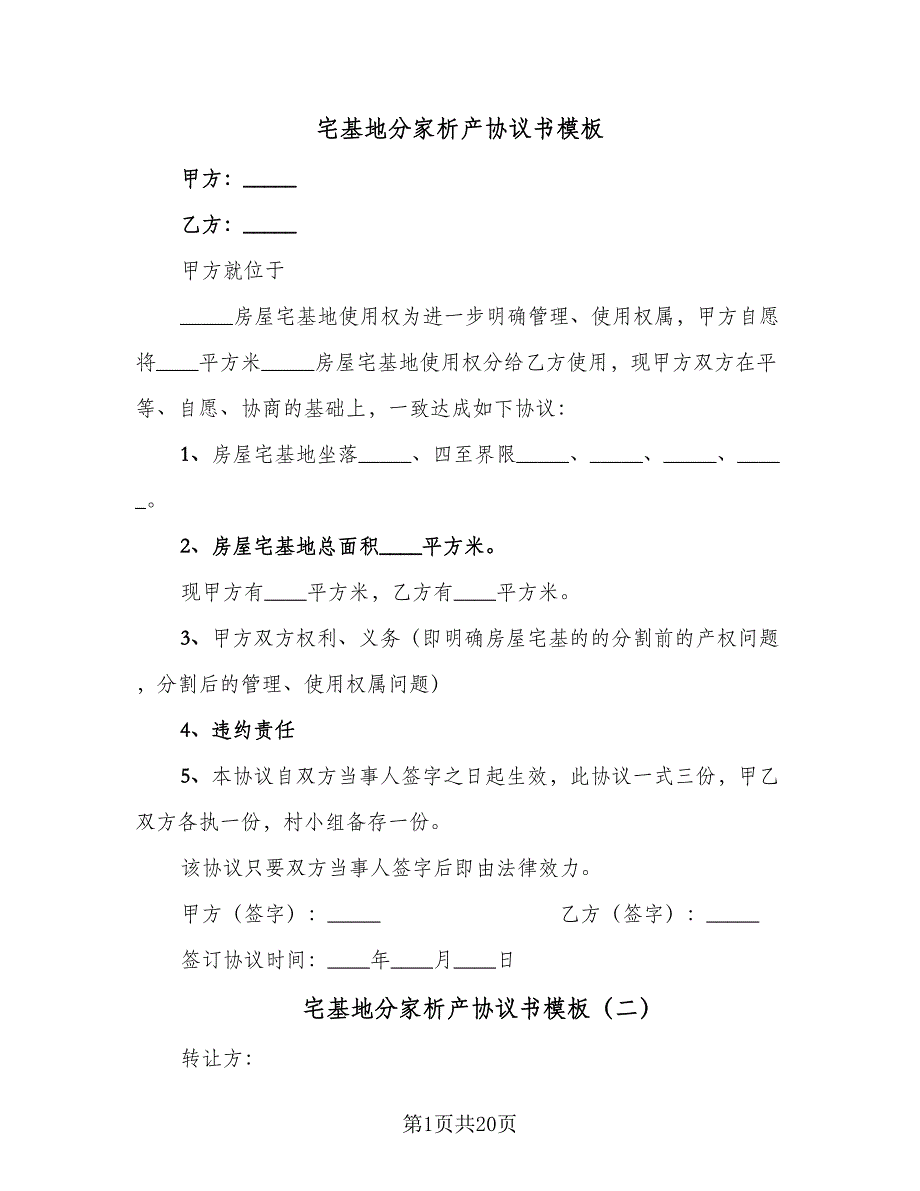 宅基地分家析产协议书模板
甲方：_____
乙方：_____
甲方就位于
_____房屋宅基地使用权为进一步明确管理、使用权属，甲方自愿
将____平方米_____房屋宅基地使用权分给乙方使用，现甲方双方在平
等、自愿、协商的基础上，一致达成如下协议：
1、房屋宅基地坐落_____、四至界限_____、_____、_____、____
_。
2、房屋宅基地总面积____平方米。
现甲方有____平方米，乙方有____平方米。
3、甲方双方权利、义务（即明确房屋宅基的的分割前的产权问题
，分割后的管理、使用权属问题）
4、违约责任
5、本协议自双方当事人签字之日起生效，此协议一式三份，甲乙
双方各执一份，村小组备存一份。
该协议只要双方当事人签字后即由法律效力。
甲方（签字）：_____ 乙方（签字）：_____
签订协议时间：____年____月____日
宅基地分家析产协议书模板（二）
转让方：
第1页共20页